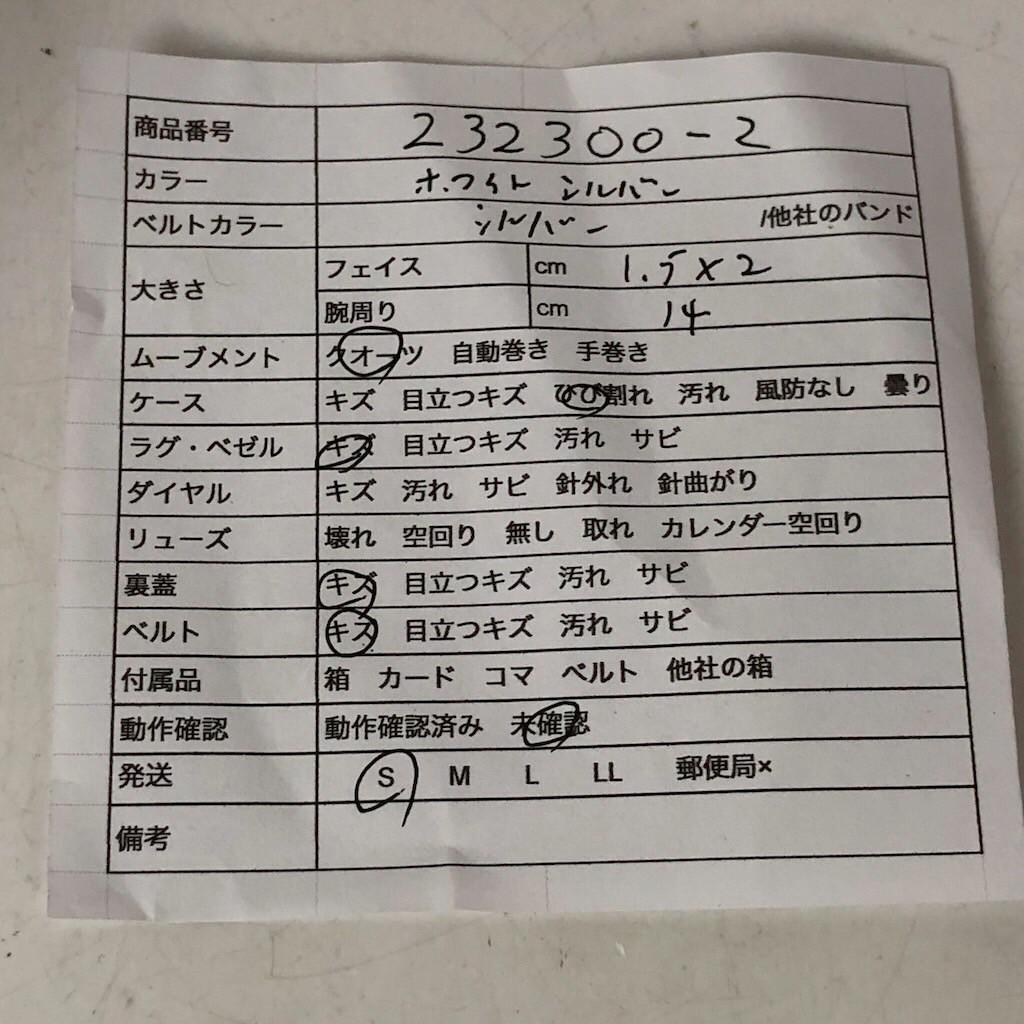 商品番号 232300-2
カラー ホワイト シルバー
ベルトカラー シルバー /他社のバンド
大きさ フェイス cm 1.5×2
腕周り cm 14
ムーブメント クオーツ 自動巻き 手巻き
ケース キズ 目立つキズ ひび割れ 汚れ 風防なし 曇り
ラグ・ベゼル キズ 目立つキズ 汚れ サビ
ダイヤル キズ 汚れ サビ 針外れ 針曲がり
リューズ 壊れ 空回り 無し 取れ カレンダー空回り
裏蓋 キズ 目立つキズ 汚れ サビ
ベルト キズ 目立つキズ 汚れ サビ
付属品 箱 カード コマ ベルト 他社の箱
動作確認 動作確認済み 未確認
発送 S M L LL 郵便局×
備考